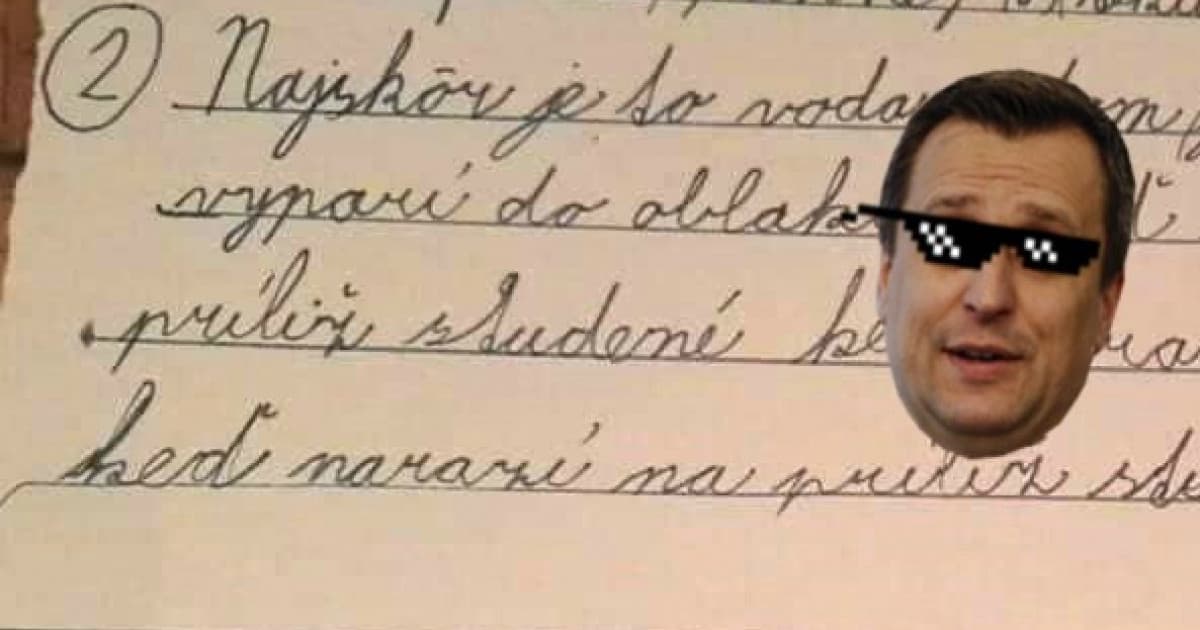 ② Najskôr je to voda
vyparí do oblak
príliž studené
keď narazí na príliž